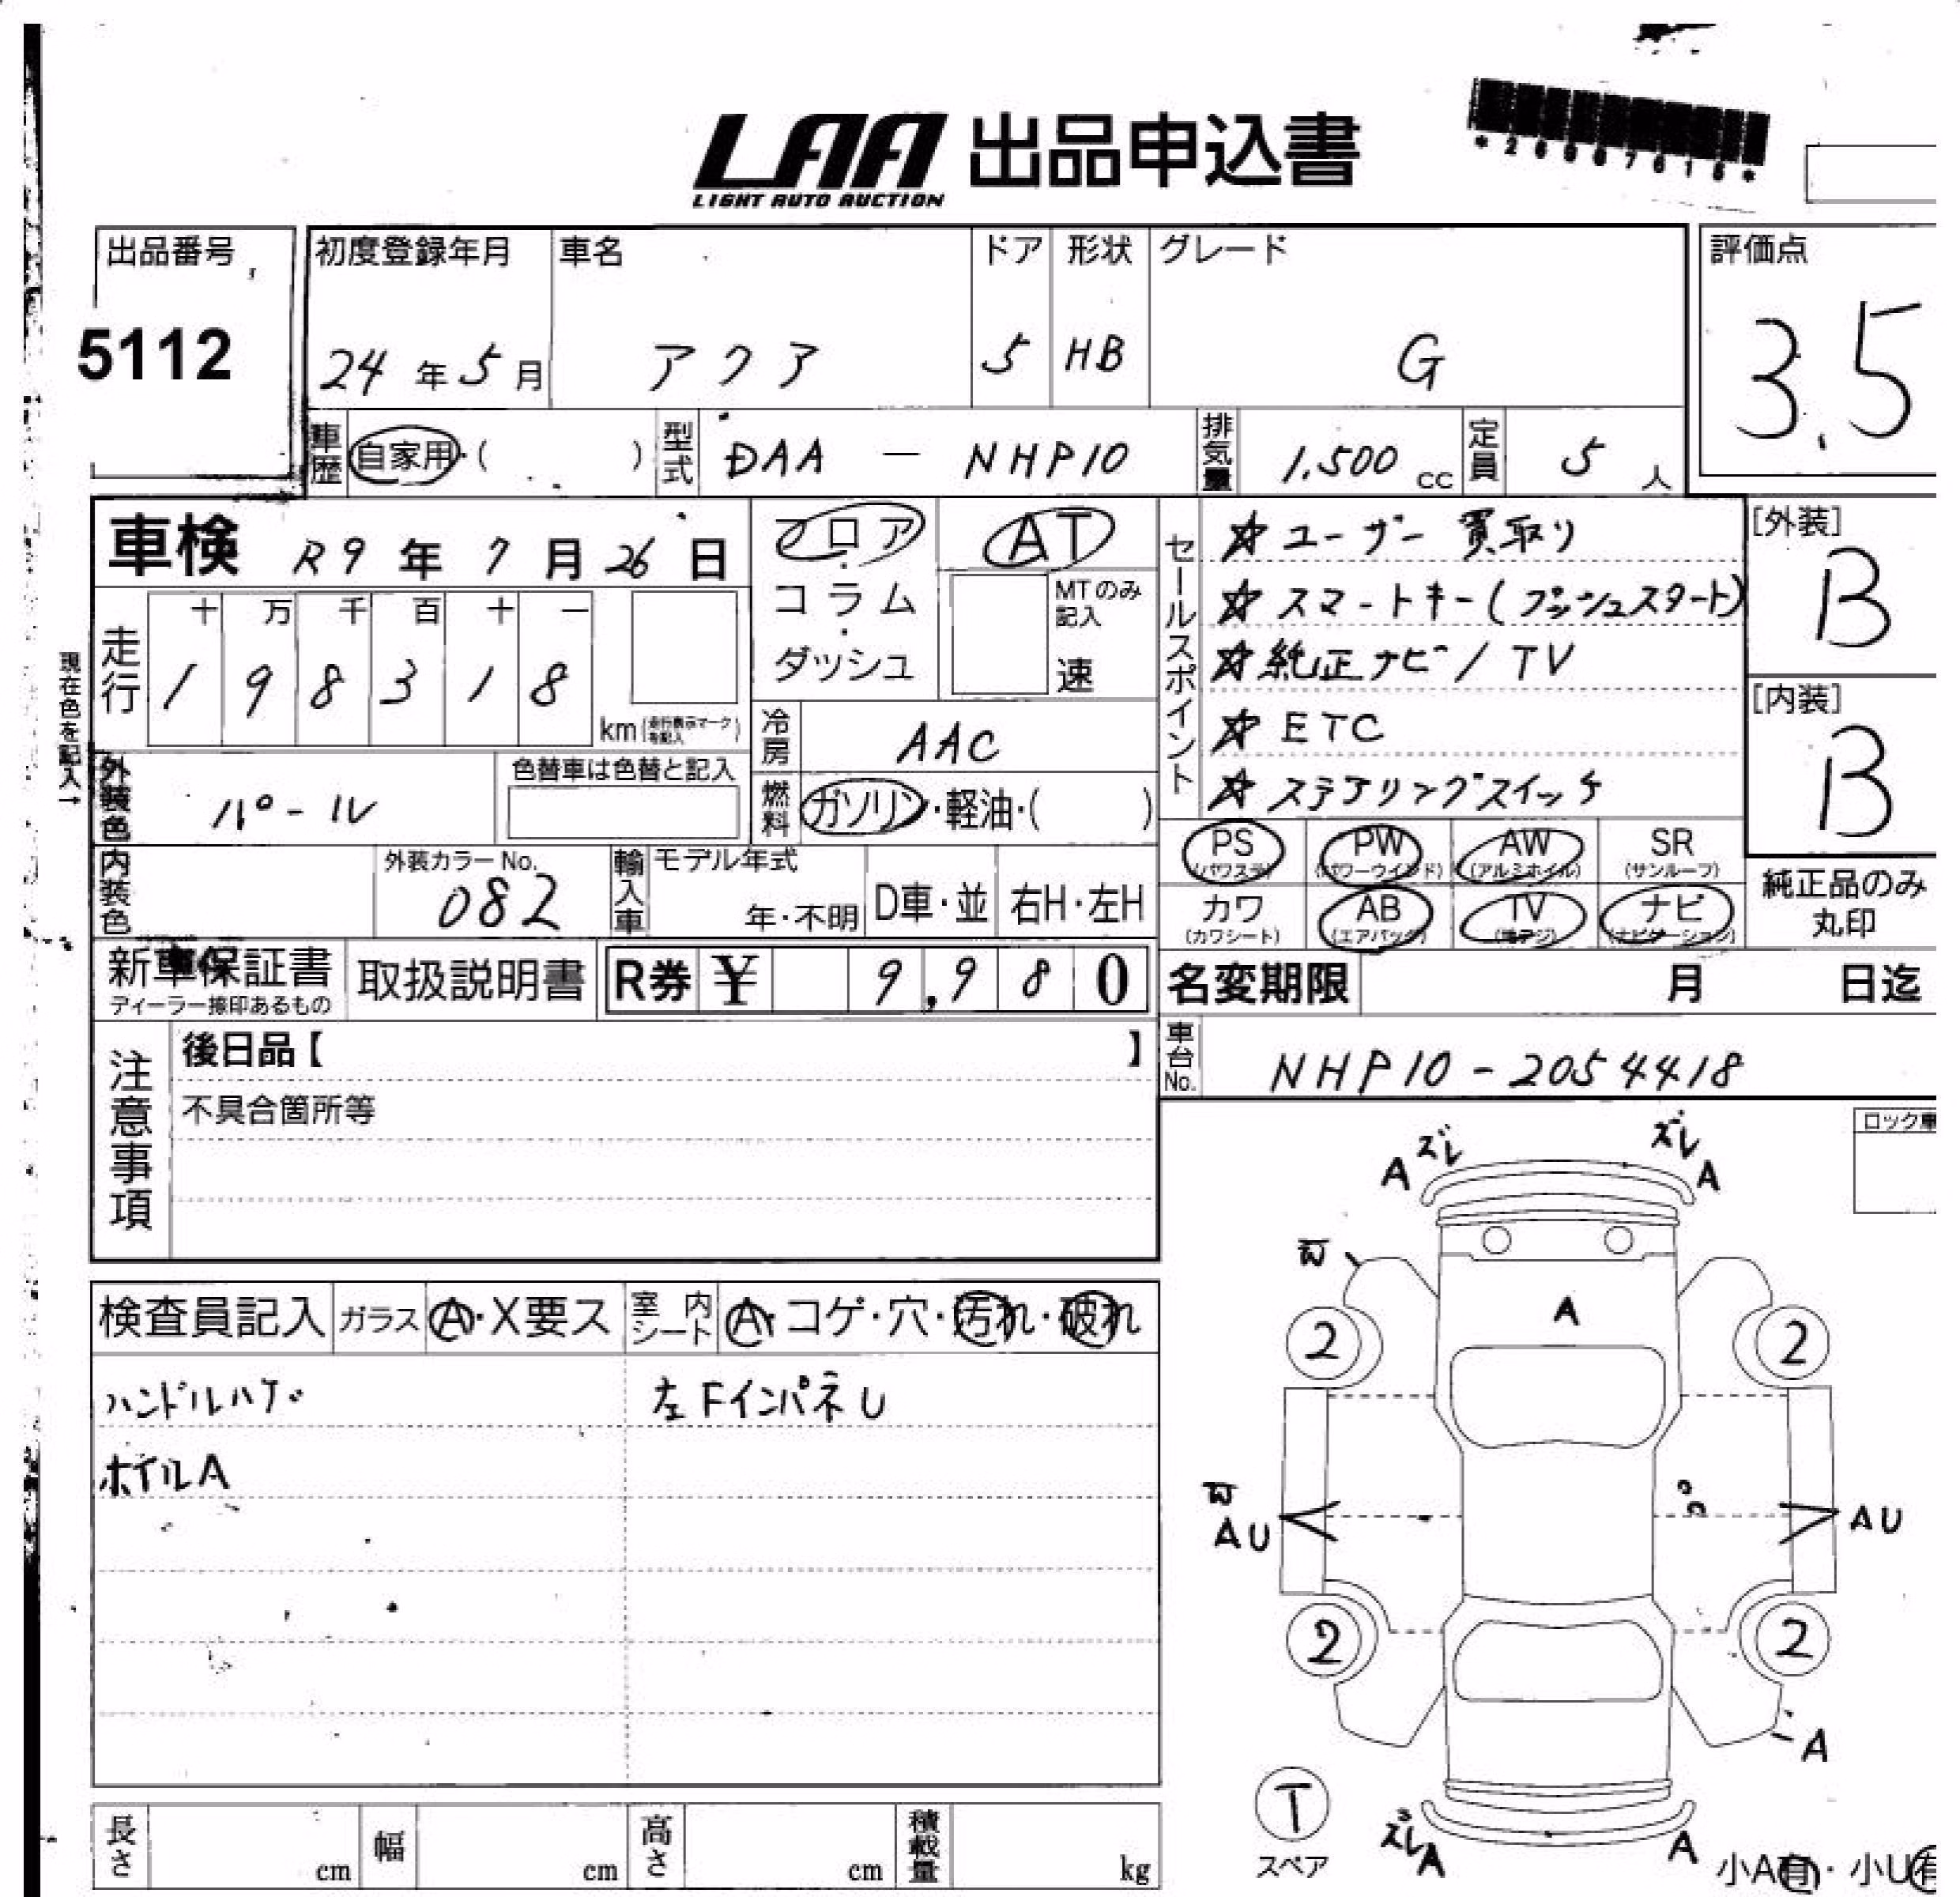 LAA 出品申込書
LIGHT AUTO AUCTION
*26967616*
出品番号
5112
初度登録年月 車名 ドア 形状 グレード
24年5月 アクア 5 HB G
評価点
3.5
車歴 自家用・( ) 型式 DAA — NHP10 排気量 1,500 cc 定員 5人
車検 R9年7月26日
フロア・コラム・ダッシュ
AT
MTのみ記入
速
セールスポイント
☆ユーザー買取り
☆スマートキー(プッシュスタート)
☆純正ナビ/TV
☆ETC
☆ステアリングスイッチ
[外装]
B
[内装]
B
走行
十 万 千 百 十 一
1 9 8 3 1 8
km(走行表示マークを記入)
現在色を記入→
冷房 AAC
燃料 ガソリン・軽油・( )
外装色 パール
色替車は色替と記入
PS (パワステ) PW (パワーウインド) AW (アルミホイル) SR (サンルーフ)
カワ (カワシート) AB (エアバック) TV (地デジ) ナビ (ナビゲーション)
純正品のみ丸印
内装色
外装カラーNo.
082
輸入車 モデル年式
年・不明 D車・並 右H・左H
新車保証書
ディーラー捺印あるもの
取扱説明書 R券 ¥ 9,980
名変期限 月 日迄
車台No. NHP10-2054418
注意事項
後日品【 】
不具合箇所等
ロック車
検査員記入 ガラス A・X要ス 室内シート A・コゲ・穴・汚れ・破れ
ハンドルハゲ 左FインパネU
ホイルA
A ズレ ズレ A
W
A
2 2
W
AU AU
2 2
A
T
スペア
ズレA A
小A有・小U有
長さ cm 幅 cm 高さ cm 積載量 kg